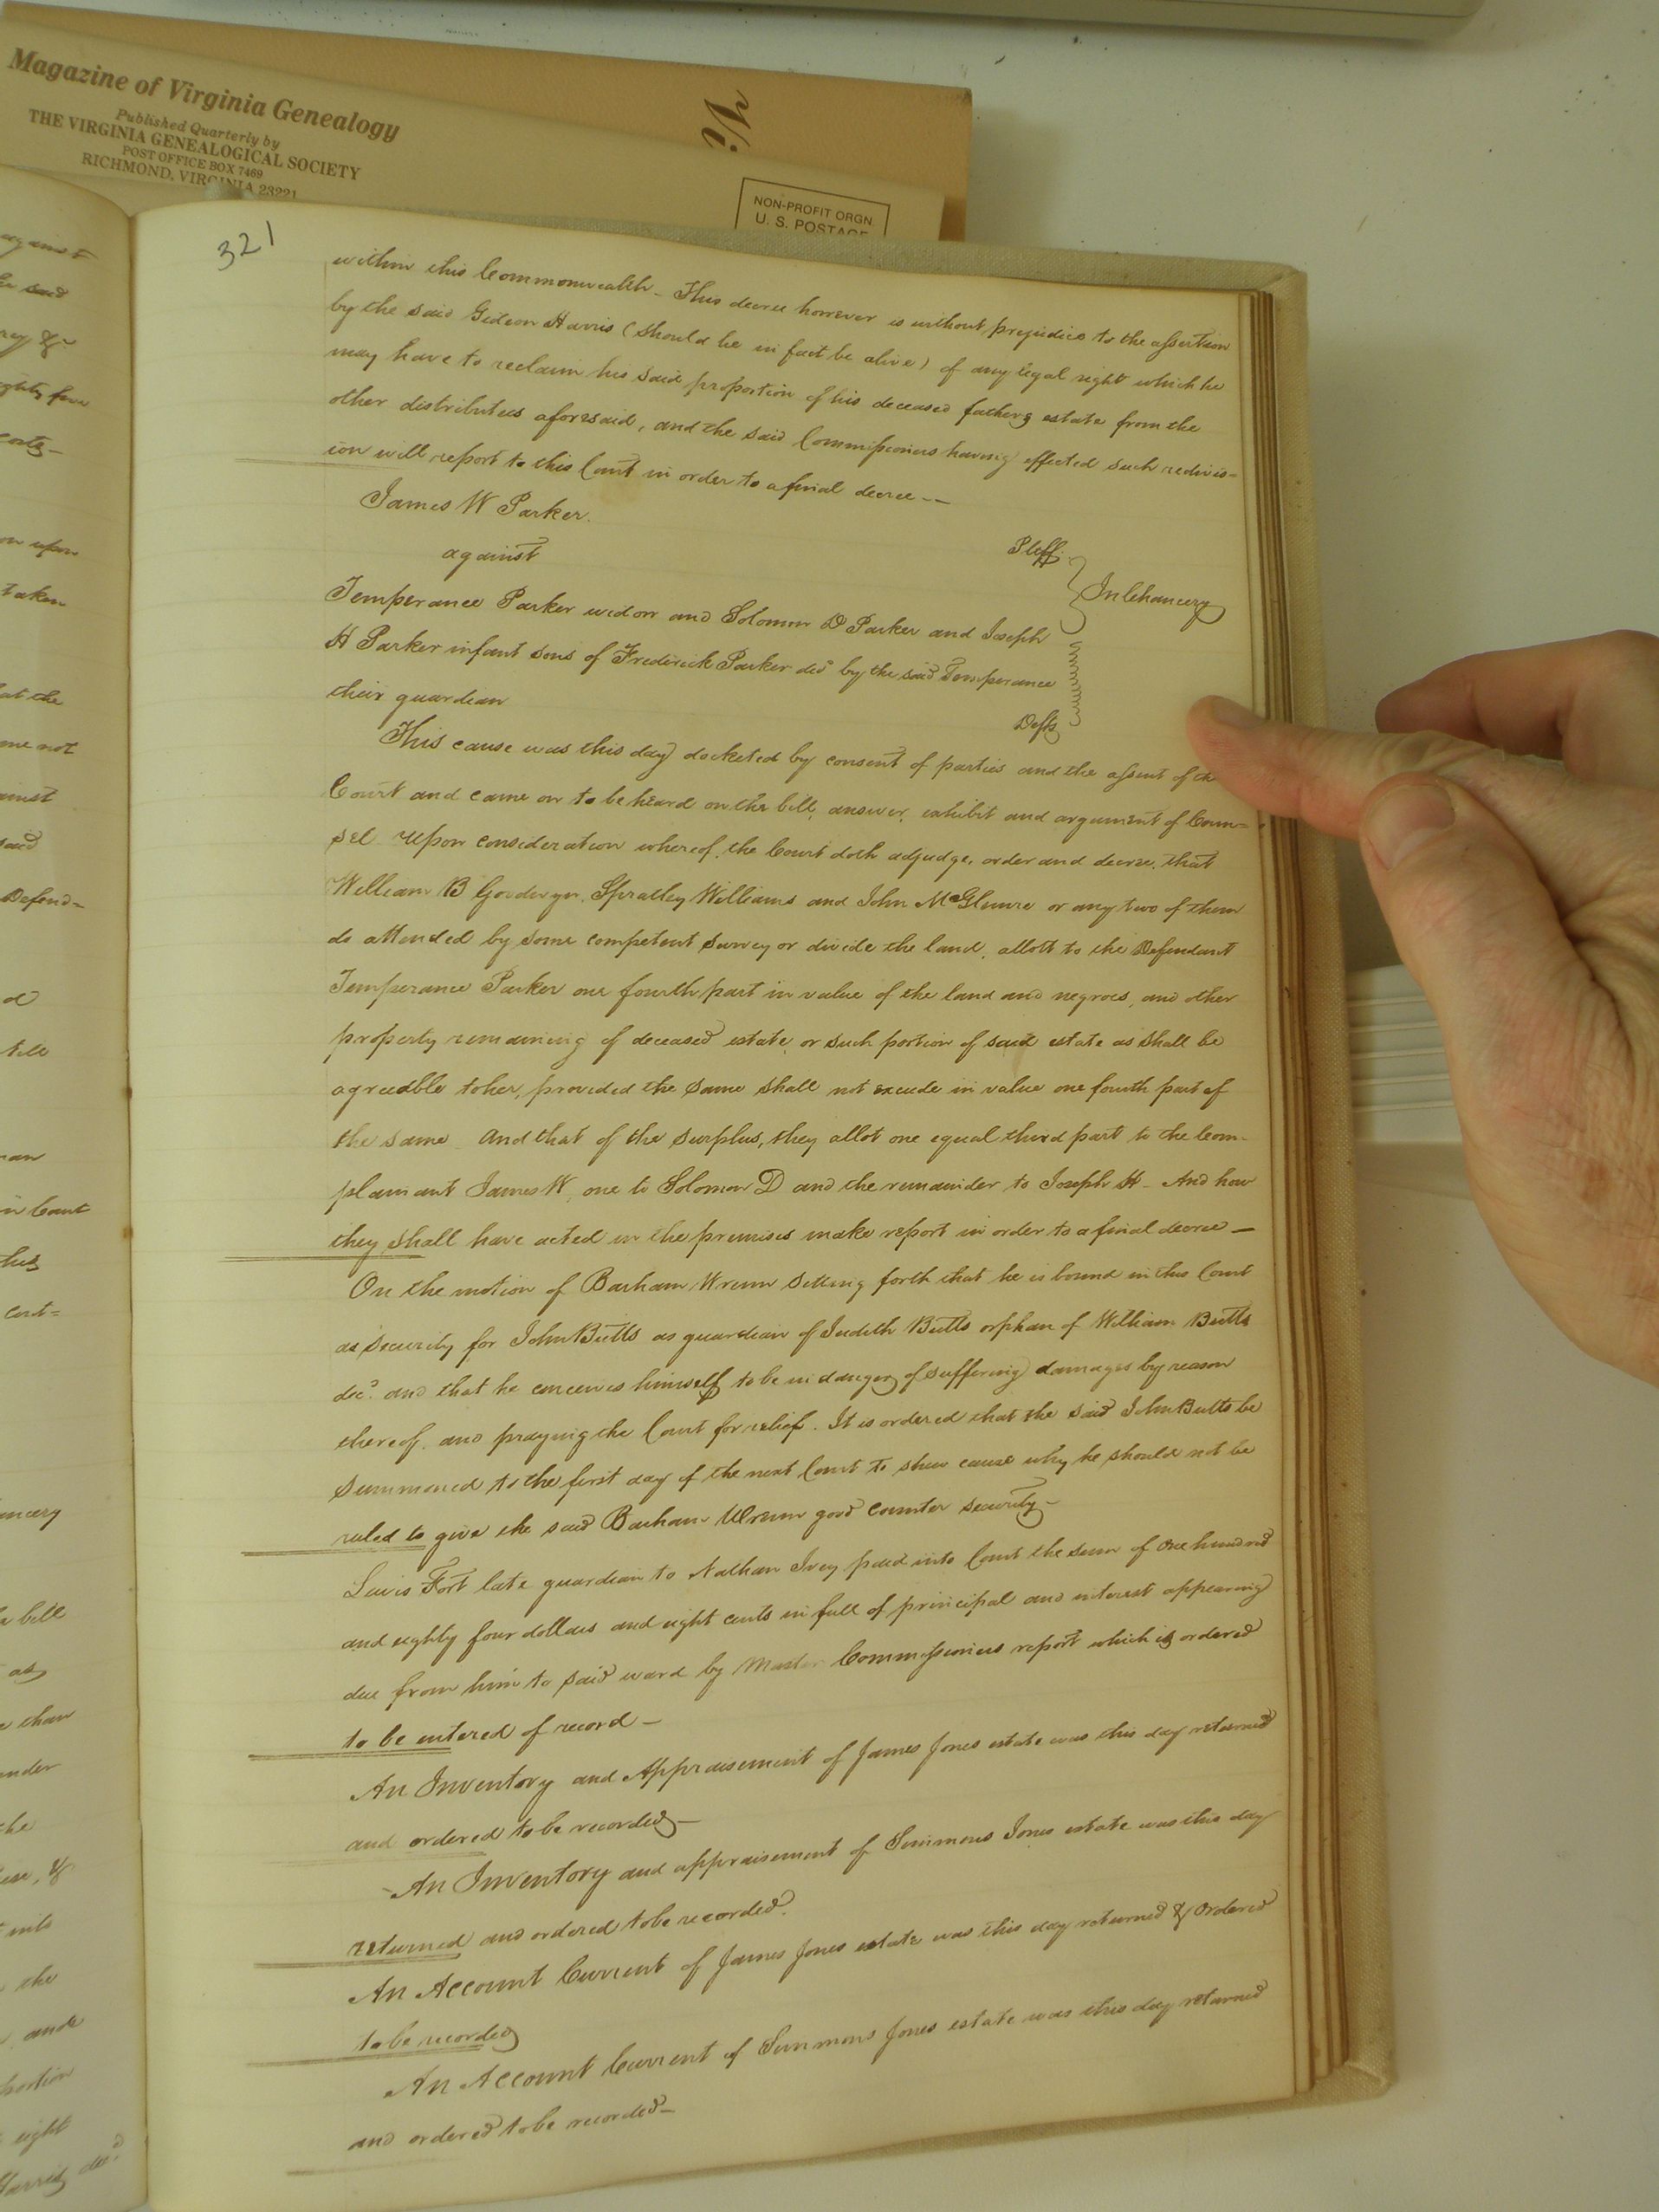 Magazine of Virginia Genealogy
Published Quarterly by
THE VIRGINIA GENEALOGICAL SOCIETY
POST OFFICE BOX 7469
RICHMOND, VIRGINIA 23221
NON-PROFIT ORGN
U. S. POSTAGE
321
within this Commonwealth - This decree however is without prejudice to the assertion
by the said Gideon Harris (should he in fact be alive) of any legal right which he
may have to reclaim his said proportion of his deceased fathers estate from the
other distributees aforesaid, and the said Commissioners having effected such redivis=
ion will report to this Court in order to a final decree --
James W Parker.
Pltff.
against
In Chancery
Temperance Parker widow and Solomon D Parker and Joseph
H Parker infant sons of Frederick Parker decd by the said Temperance
their guardian
Defts
This cause was this day docketed by consent of parties and the assent of the
Court and came on to be heard on the bill, answer, exhibit and argument of Coun=
sel Upon consideration whereof, the Court doth adjudge, order and decree, that
William B Goodwyn, Spratley Williams and John McGlemre or any two of them
do attended by some competent surveyor divide the land, allott to the Defendant
Temperance Parker one fourth part in value of the land and negroes, and other
property remaining of deceased estate, or such portion of said estate as shall be
agreeable to her, provided the same shall not exceede in value one fourth part of
the same And that of the surplus, they allot one equal third part to the Com-
plainant James W, one to Solomon D and the remainder to Joseph H - And how
they shall have acted in the premises make report in order to a final decree -
On the motion of Barham Wrenn setting forth that he is bound in this Court
as security for John Butts as guardian of Judith Butts orphan of William Butts
decd. and that he conceives himself to be in danger of suffering damages by reason
thereof, and praying the Court for relief. It is ordered that the said John Butts be
summoned to the first day of the next Court to shew cause why he should not be
ruled to give the said Barham Wrenn good counter security -
Lewis Fort late guardian to Nathan Ivey paid into Court the sum of One hundred
and eighty four dollars and eight cents in full of principal and interest appearing
due from him to said ward by Master Commissioners report which is ordered
to be entered of record -
An Inventory and Appraisement of James Jones estate was this day returned
and ordered to be recorded -
An Inventory and appraisement of Simmons Jones estate was this day
returned and ordered to be recorded.
An Account Current of James Jones estate was this day returned & Ordered
to be recorded
An Account Current of Simmons Jones estate was this day returned
and ordered to be recorded -